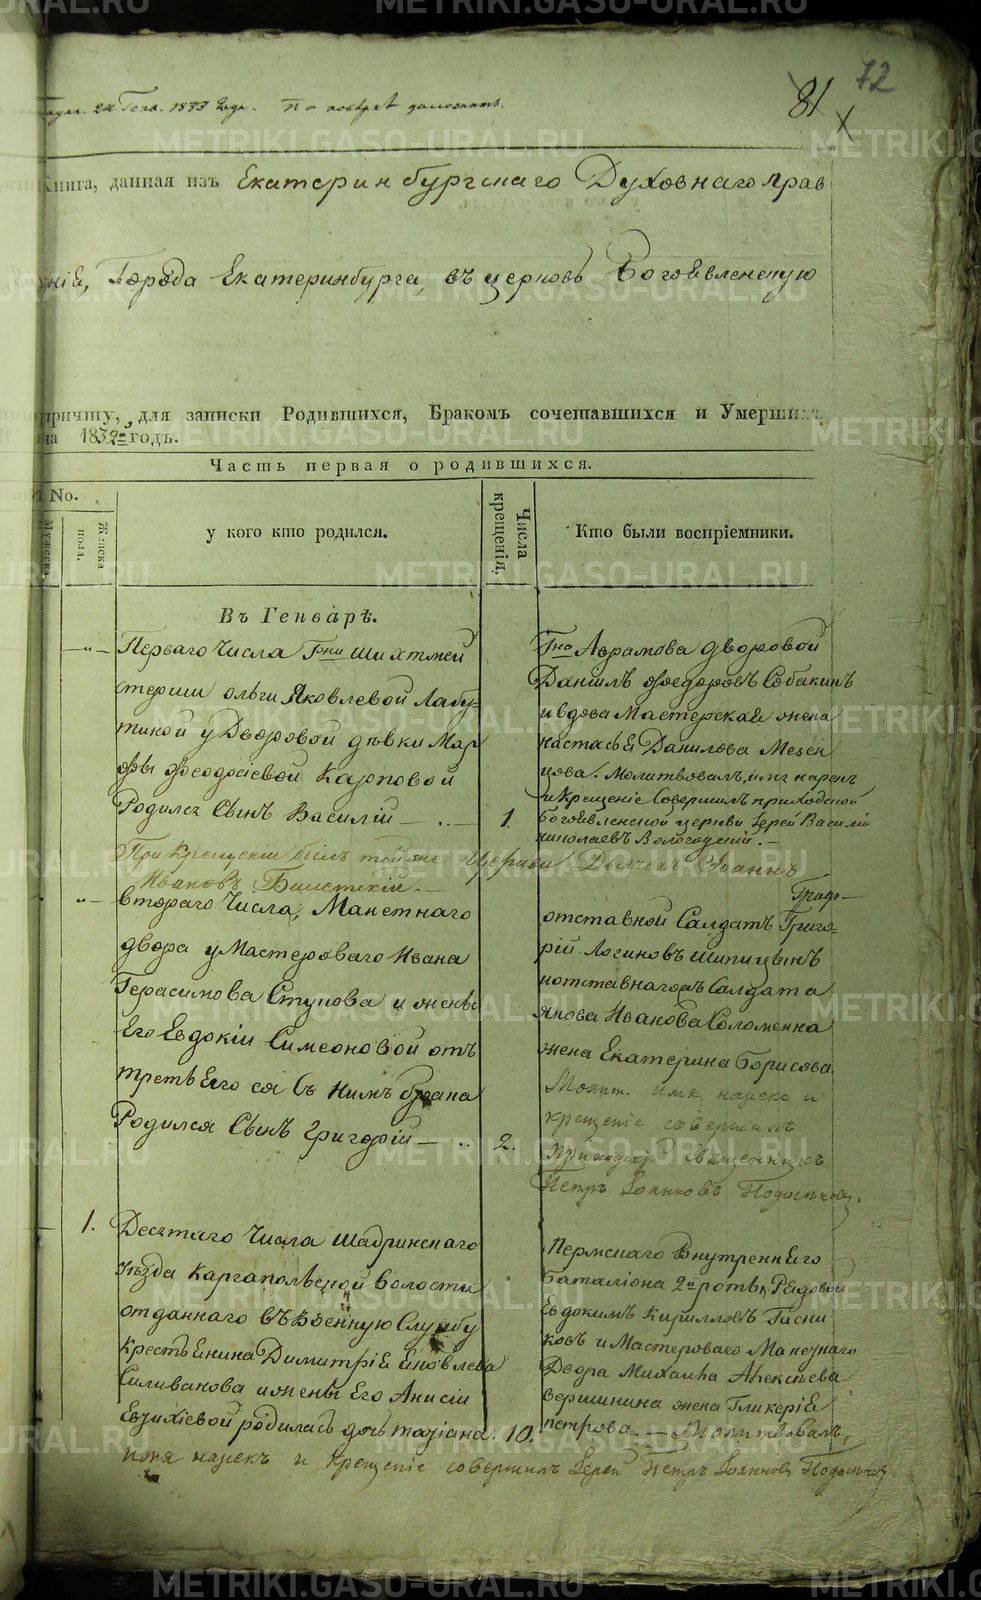 METRIKI.GASO-URAL.RU
72
81
24 Генв. 1833 года.
Книга, данная изъ Екатеринбургскаго Духовнаго прав
Города Екатеринбурга, въ церковь Богоявленскую
причту, для записки Родившихся, Бракомъ сочетавшихся и Умершихъ
на 1832й годъ.
Часть первая о родившихся.
No.
Мужеска
Женска
пола.
у кого кто родился.
Числа
крещенія.
Кто были воспріемники.
Въ Генварѣ.
Перваго Числа Гжи шихтмей
стерши Ольги Яковлевой Лабу-
тиной у Дворовой дѣвки Мар
фы Феодосіевой Карповой
Родился Сынъ Василій
1.
Гна Аврамова дворовой
Даніилъ Феодоровъ Собакинъ
и вдова Мастерская жена
Настасья Данилова Мезен
цова. Молитвовалъ, имя нарекъ
и Крещеніе Совершилъ приходской
Богоявленской церкви Іерей Василій
Николаевъ Вологодскій.
При Крещеніи былъ той же Церкви Дьячекъ Іоаннъ
Ивановъ
втораго Числа, Манетнаго
двора у Мастероваго Ивана
Герасимова Ступова и жены
Его Евдокіи Симеоновой отъ
третьЕго ея съ нимъ брака
Родился Сынъ Григорій
2.
отставной Салдатъ Григо-
рій Логиновъ Шипицынъ
и отставнагожъ Салдата
Якова Иванова Соломеина
жена Екатерина Борисова
Молит. имя нареко и
крещеніе совершилъ
приходскій Священникъ
Петръ Іоанновъ
1.
Десятаго Числа Шадринскаго
Уѣзда Каргапольской волости
отданнаго въ Военную Службу
КрестьЕнина Димитрія Яковлева
Силиванова и жены Его Анисіи
Евтихіевой родилась дочь Татіана.
10.
Пермскаго ВнутреннЕго
Баталіона 2й роты Рядовой
Евдокимъ Кирилловъ
ковъ и Мастероваго Манетнаго
Двора Михаила Алексѣева
вершинина жена Гликерія
петрова. Молитвовалъ,
имя нарекъ и Крещеніе совершилъ Іерей Петръ Іоанновъ